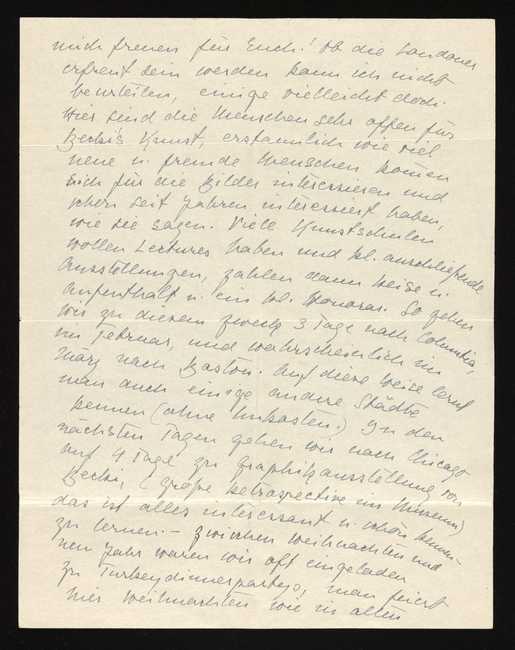 mich freuen für Euch! Ob die Londoner
erfreut sein werden kann ich nicht
beurteilen, einige vielleicht doch.
Hier sind die Menschen sehr offen für
Becki's Kunst, erstaunlich wie viel
neue u. fremde Menschen kommen
sich für die Bilder interessieren und
schon seit Jahren interessiert haben,
wie sie sagen. Viele Kunstschulen
wollen Lectures haben und kl. anschließende
Ausstellungen, zahlen dann Reise u.
Aufenthalt u. ein kl. Honorar. So gehen
wir zu diesem Zweck 3 Tage nach Columbia,
im Februar, und wahrscheinlich im
März nach Boston. Auf diese Weise lernt
man auch einige andere Städte
kennen (ohne Unkosten.) In den
nächsten Tagen gehen wir nach Chicago
auf 4 Tage zu Graphikausstellung von
Becki, (große Retrospective im Museum)
das ist alles interessant u. schön kennen-
zu lernen. – Zwischen Weihnachten und
neu Jahr waren wir oft eingeladen
zu Turkeydinnerpartys, man feiert
hier Weihnachten wie in alten